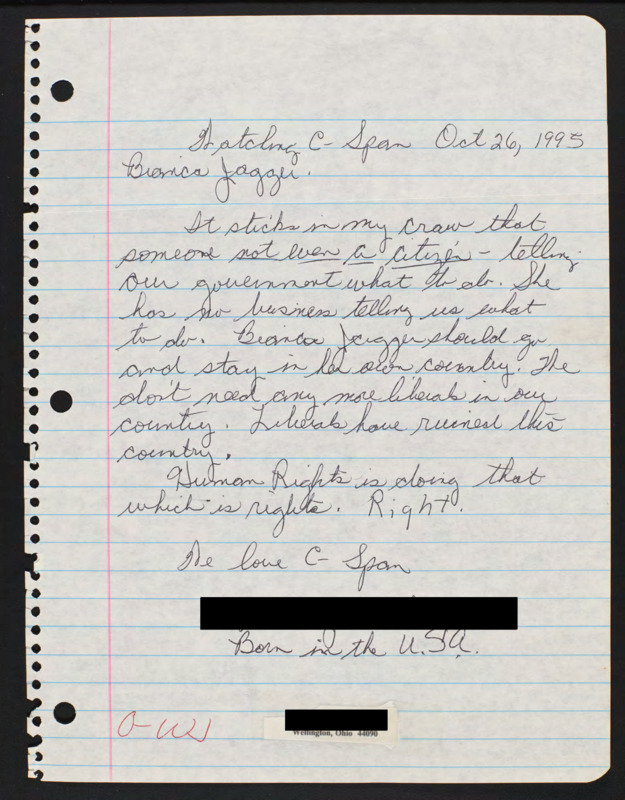 Watching C-Span Oct 26, 1995
Bianca Jagger.
It sticks in my craw that
someone not even a citizen - telling
our government what to do. She
has no business telling us what
to do. Bianca Jagger should go
and stay in her own country. We
don't need any more liberals in our
country. Liberals have ruined this
country.
Human Rights is doing that
which is rights. Right.
We love C- Span
Born in the U.S.A.
O-W
Wellington, Ohio 44090